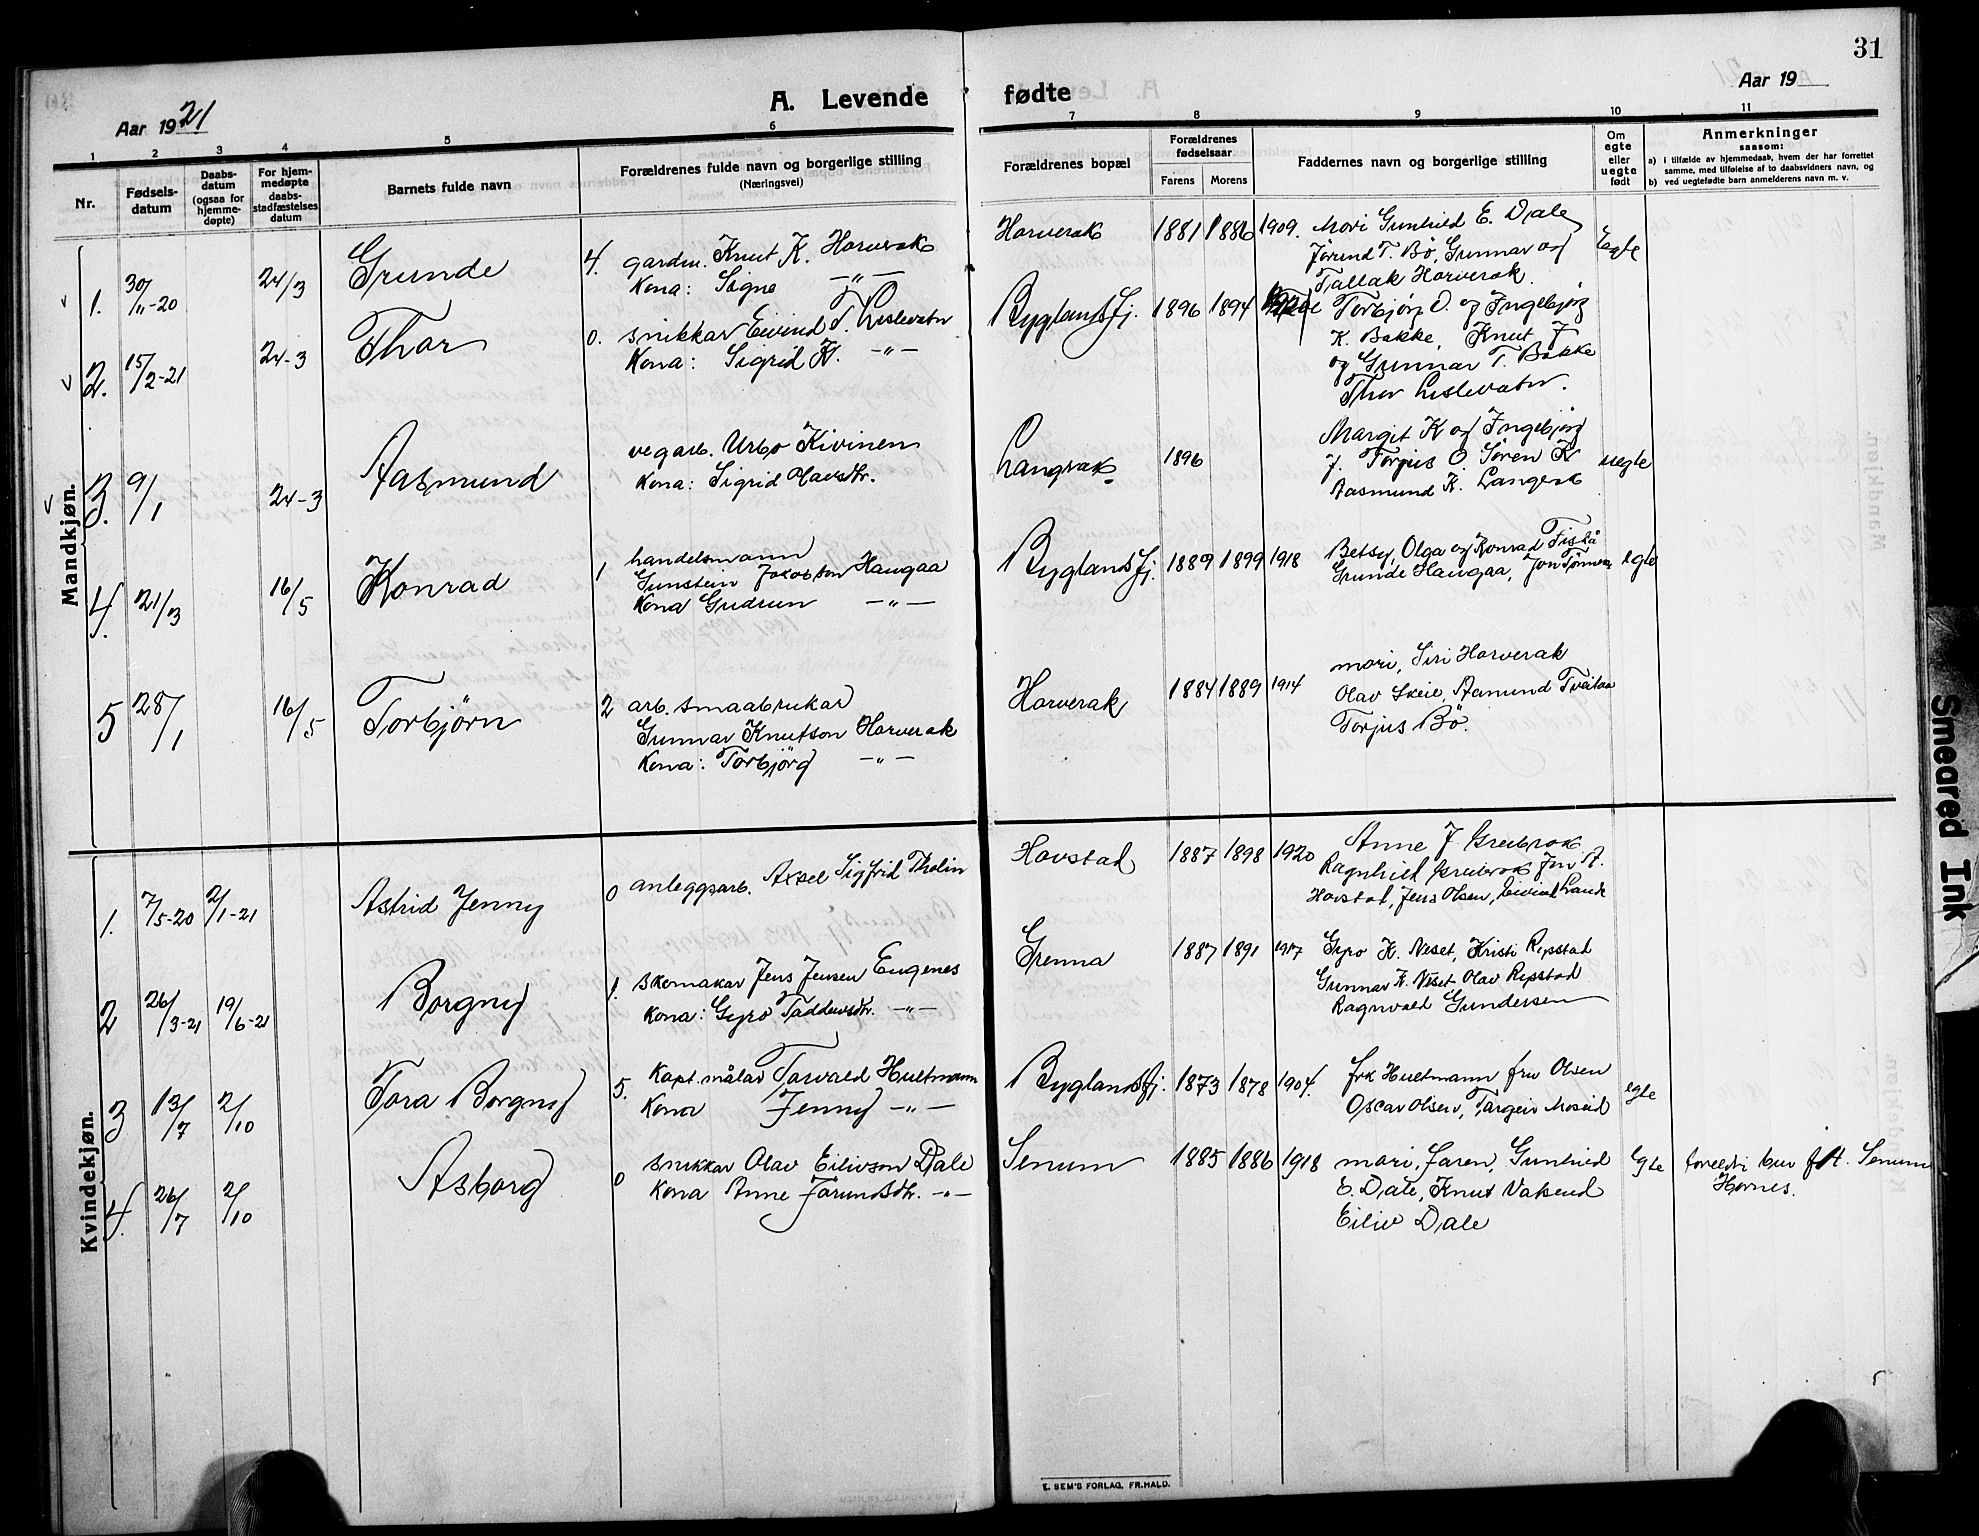 31
Aar 1921
A. Levende fødte
Aar 19
1 2 3 4 5 6 7 8 9 10 11
Nr.
Fødsels-
datum
Daabs-
datum
(ogsaa for
hjemme-
døpte)
For hjem-
medøpte
daabs-
stadfæstelses
datum
Barnets fulde navn
Forældrenes fulde navn og borgerlige stilling
(Næringsvei)
Forældrenes bopæl
Forældrenes
fødselsaar
Farens Morens
Faddernes navn og borgerlige stilling
Om
egte
eller
uegte
født
Anmerkninger
saasom:
a) i tilfælde av hjemmedaab, hvem der har forrettet
samme, med tilføielse af to daabsvidners navn, og
b) ved uegtefødte barn anmelderens navn m. v.
Mandkjøn.
1. 30/11-20 24/3 Grunde 4. gardm. Knut K. Horverak
Kona: Signe —"—
Horverak 1881 1886 1909. Mori Gunhild E. Dale
Jørund T. Bø, Gunnar og
Tallak Horverak.
Egte
2. 15/2-21 24-3 Thor 0. snikkar Eivind T. Lislevatn
Kona: Sigrid K. —"—
Byglandsfj. 1896 1894 Torbjörg O. og Ingebjørg
K. Bakke, Knut J
og Gunnar T. Bakke
Thor Lislevatn.
3. 9/1 24-3 Aasmund vegarb. Urbo Kivinen
Kona: Sigrid Olavsdtr.
Langerak 1896 Margit K og Ingebjørg
J. Torjus O. Søren K
Aasmund K. Langerak
uegte
4. 21/3 16/5 Konrad 1 handelsmann
Gunstein Jakobson Haugaa
Kona Gudrun —"—
Byglandsfj. 1889 1899 1918 Betsy, Olga og Konrad Fiskå
Grunde Haugaa, Jon
egte
5 28/1 16/5 Torbjörn 2 arb. smaabrukar
Gunnar Knutson Horverak
Kona: Torbjörg —"—
Horverak 1884 1889 1914 mori, Siri Horverak
Olav Skeie, Aamund Tveitaa
Torjus Bö.
Kvindekjøn.
1. 7/5-20 2/1-21 Astrid Jenny 0 anleggsarb. Axsel Sigfrid Tholin
Hovstad 1887 1898 1920 Anne J. Greibrok
Ragnhild Greibrok Jon A.
Hovstad, Jens Olsen, Eivind Lande
2 26/3-21 19/6-21 Borgny 1. skomakar Jens Jensen Eugenes
Kona: Gyro Taddeusdtr. —"—
Grenna 1887 1891 1917 Gyro K. Neset, Kristi Ripstad
Gunnar K. Neset, Olav Ripstad
Ragnvald Gundersen
3 13/7 2/10 Tora Borgny 5. Kapt. målar Torvald Hultmann
Kona Jenny —"—
Byglandsfj. 1873 1878 1904. frk Hultmann fru Olsen
Oscar Olsen, Targeir Moseid
egte
4. 26/7 2/10 Asborg 0 snikkar Olav Eilivson Dale
Kona Anne Jörundsdtr. —"—
Senum 1885 1886 1918 mori, faren, Gunhild
E. Dale, Knut Vaksund
Eiliv Dale
Egte
foreldri bur Senum
Hornes.
E. SEM'S FORLAG, FR.HALD.
Smeared Ink